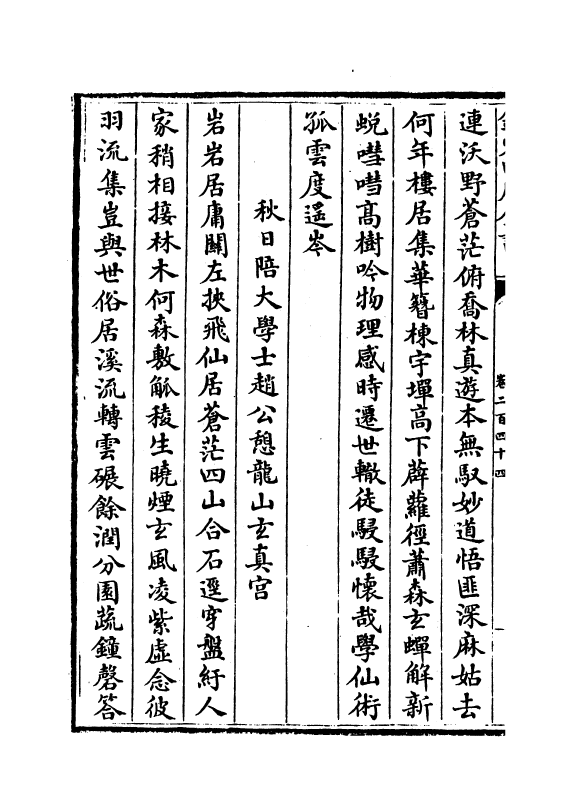 卷二百四十四
連沃野蒼茫俯喬林真遊本無馭妙道悟匪深麻姑去
何年樓居集華簪棟宇墠高下薜蘿徑蕭森玄蟬解新
蛻嘒嘒高樹吟物理感時遷世轍徒駸駸懷哉學仙術
孤雲度遥岑
秋日陪大學士趙公憩龍山玄真宫
岩岩居庸關左挾飛仙居蒼茫四山合石逕穿盤紆人
家稍相接林木何森敷觚稜生曉煙玄風凌紫虛念彼
羽流集豈與世俗居溪流轉雲碾餘潤分園蔬鐘磬答